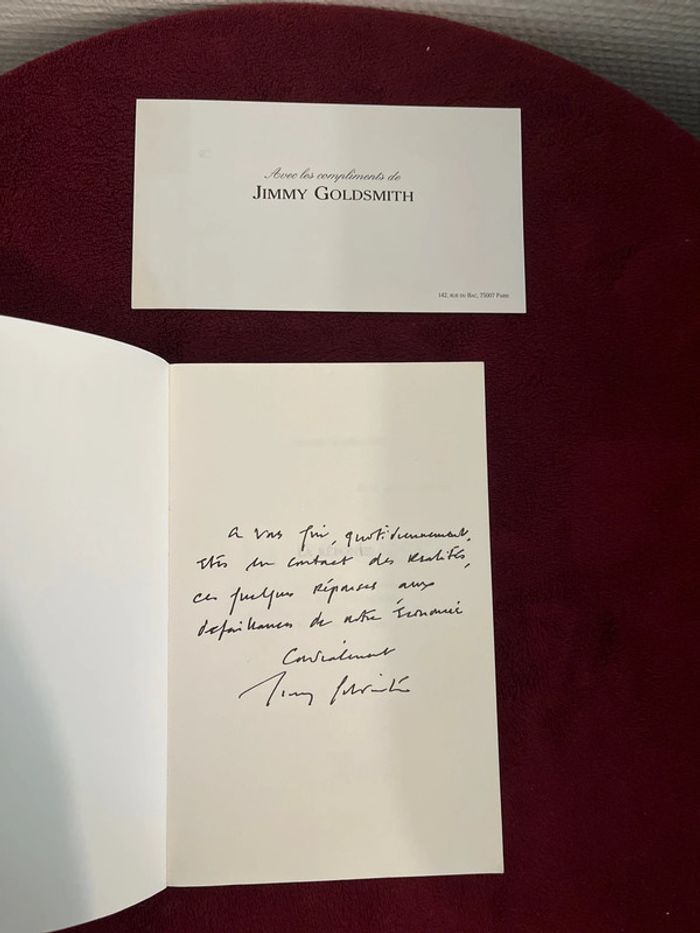 Avec les compliments de
JIMMY GOLDSMITH
142, RUE DU BAC, 75007 PARIS
A vous qui, quotidiennement,
êtes en contact des réalités,
ces quelques réponses aux
défaillances de notre Économie
Cordialement
Jimmy Goldsmith